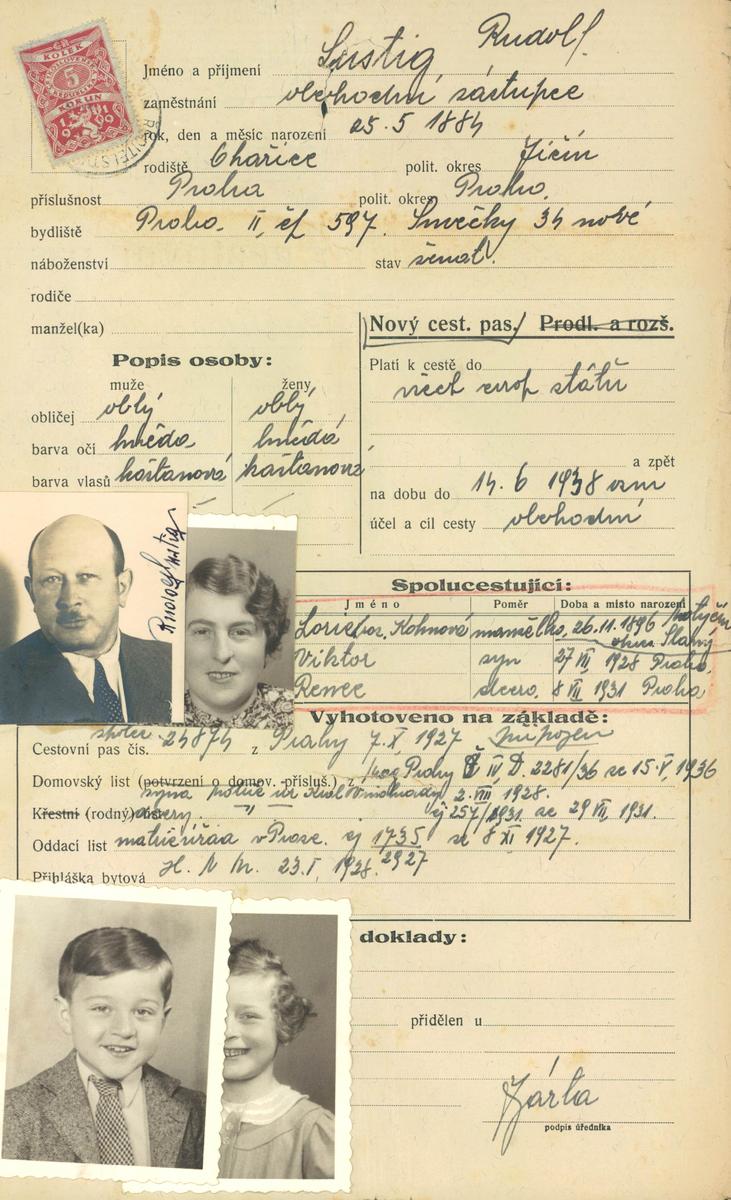 KOLEK
5
KORUN
1919
Jméno a příjmení Lustig Rudolf
zaměstnání obchodní zástupce
rok, den a měsíc narození 25. 5 1884
rodiště polit. okres Jičín
příslušnost Praha polit. okres Praha
bydliště Praha II, čp 597. Smečky 34 nové
náboženství stav ženat.
rodiče
manžel(ka)
Nový cest. pas. / Prodl. a rozš.
Popis osoby:
muže ženy
obličej oblý oblý
barva očí hnědá hnědá
barva vlasů kaštanová kaštanová
Platí k cestě do
všech evrop států
a zpět
na dobu do 14. 6 1938
účel a cíl cesty obchodní
Rudolf Lustig
Spolucestující:
Jméno Poměr Doba a místo narození
Kohnová manželka, 26. 11. 1896 okres Slaný
Viktor syn 27 VII 1928 Praha,
Renee dcera. 8 VII 1931 Praha
Vyhotoveno na základě:
Cestovní pas čís. 24874 z Prahy 7. X. 1927 připojen
Domovský list (potvrzení o domov. přísluš.) z mag Prahy Č IV. D. 2281/36 ze 15. V. 1936
syna Král Vinohrady 2. VIII 1928.
Křestní (rodný) list dcery. čj 257/1931. ze 29 VII 1931.
Oddací list v Praze. čj 1735 ze 8 XI 1927.
Přihláška bytová 23. I. 1928. 2927
doklady:
přidělen u
Járla
podpis úředníka